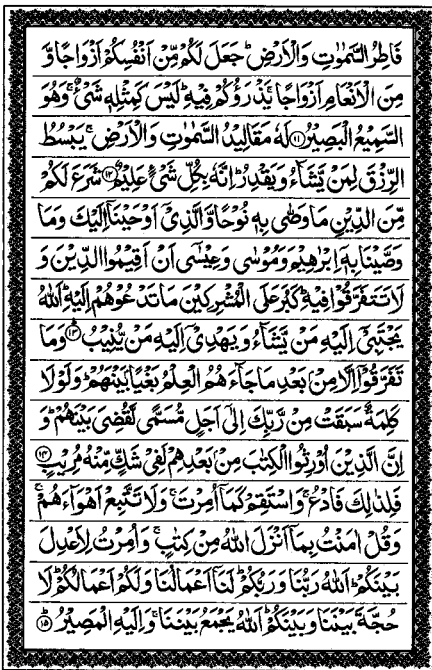 فَاطِرُ السَّمٰوٰتِ وَالْاَرْضِ ؕ جَعَلَ لَكُمْ مِّنْ اَنْفُسِكُمْ اَزْوَاجًا وَّ
مِنَ الْاَنْعَامِ اَزْوَاجًا ۚ يَذْرَؤُكُمْ فِيْهِ ؕ لَيْسَ كَمِثْلِهٖ شَىْءٌ ۚ وَهُوَ
السَّمِيْعُ الْبَصِيْرُ ﴿۱۱﴾ لَهٗ مَقَالِيْدُ السَّمٰوٰتِ وَالْاَرْضِ ۚ يَبْسُطُ
الرِّزْقَ لِمَنْ يَّشَآءُ وَيَقْدِرُ ؕ اِنَّهٗ بِكُلِّ شَىْءٍ عَلِيْمٌ ﴿۱۲﴾ شَرَعَ لَكُمْ
مِّنَ الدِّيْنِ مَا وَصّٰى بِهٖ نُوْحًا وَّالَّذِىْۤ اَوْحَيْنَاۤ اِلَيْكَ وَمَا
وَصَّيْنَا بِهٖۤ اِبْرٰهِيْمَ وَمُوْسٰى وَعِيْسٰۤى اَنْ اَقِيْمُوا الدِّيْنَ وَ
لَا تَتَفَرَّقُوْا فِيْهِ ؕ كَبُرَ عَلَى الْمُشْرِكِيْنَ مَا تَدْعُوْهُمْ اِلَيْهِ ؕ اَللّٰهُ
يَجْتَبِىْۤ اِلَيْهِ مَنْ يَّشَآءُ وَيَهْدِىْۤ اِلَيْهِ مَنْ يُّنِيْبُ ﴿۱۳﴾ وَمَا
تَفَرَّقُوْۤا اِلَّا مِنْۢ بَعْدِ مَا جَآءَهُمُ الْعِلْمُ بَغْيًاۢ بَيْنَهُمْ ؕ وَلَوْلَا
كَلِمَةٌ سَبَقَتْ مِنْ رَّبِّكَ اِلٰۤى اَجَلٍ مُّسَمًّى لَّقُضِىَ بَيْنَهُمْ ؕ وَ
اِنَّ الَّذِيْنَ اُوْرِثُوا الْكِتٰبَ مِنْۢ بَعْدِهِمْ لَفِىْ شَكٍّ مِّنْهُ مُرِيْبٍ ﴿۱۴﴾
فَلِذٰلِكَ فَادْعُ ۚ وَاسْتَقِمْ كَمَاۤ اُمِرْتَ ۚ وَلَا تَتَّبِعْ اَهْوَآءَهُمْ ۚ
وَقُلْ اٰمَنْتُ بِمَاۤ اَنْزَلَ اللّٰهُ مِنْ كِتٰبٍ ۚ وَاُمِرْتُ لِاَعْدِلَ
بَيْنَكُمْ ؕ اَللّٰهُ رَبُّنَا وَرَبُّكُمْ ؕ لَنَاۤ اَعْمَالُنَا وَلَكُمْ اَعْمَالُكُمْ ؕ لَا
حُجَّةَ بَيْنَنَا وَبَيْنَكُمْ ؕ اَللّٰهُ يَجْمَعُ بَيْنَنَا ۚ وَاِلَيْهِ الْمَصِيْرُ ﴿۱۵﴾